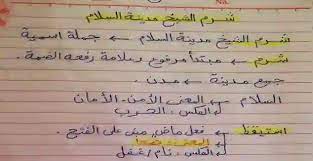 شرم الشيخ مدينة السلام
شرم الشيخ مدينة السلام ← جملة اسمية
شرم ← مبتدأ مرفوع وعلامة رفعه الضمة.
جمع مدينة ← مدن.
السلام ← المعنى الأمن - الأمان
← العكس الحرب
استيقظ ← فعل ماضى مبنى على الفتح.
← المعنى: صحا
← العكس: نام / غفل